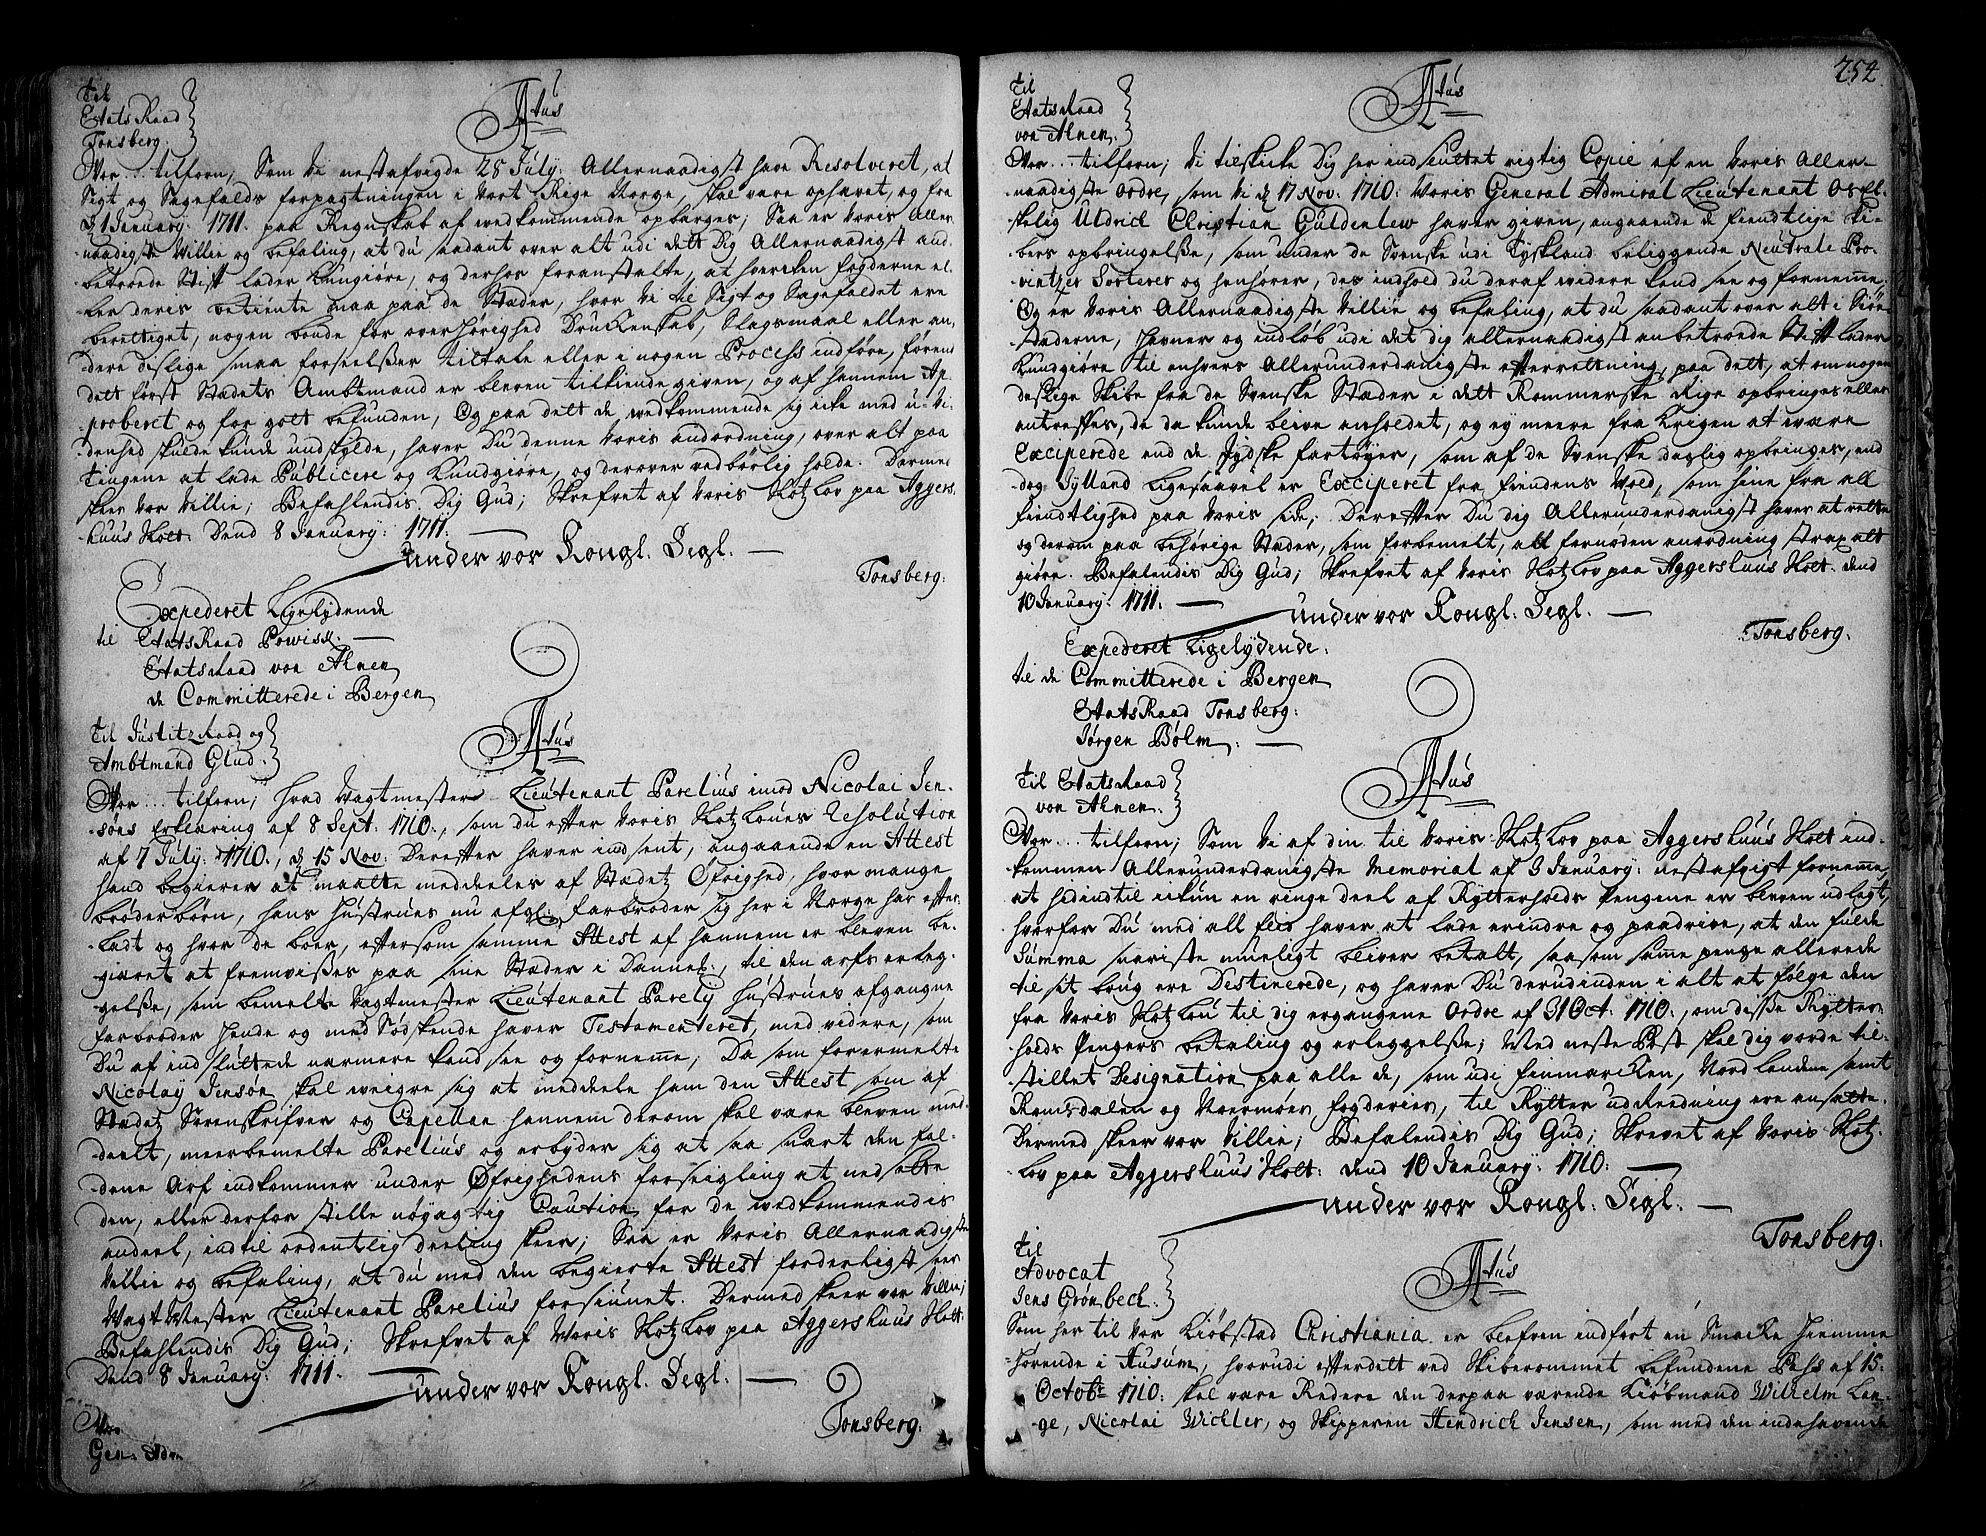 til
EtatsRaad
Tonsberg.
Atus
Vor... tilforn; Som Vi nestafvigde 28 July: Allernaadigst have Resolveret, at
Sigt og Sagefalds forpagtningen i Vort Rige Norge, skal vare ophævet, og fra
d 1 January: 1711. paa Regnskab af wedkommende opbærges; Saa er Voris Aller-
naadigste Villie og befaling, at du saadant over alt udi dett Dig Allernaadigst an-
betroede Stift lader kungiøre, og derhos foranstalte, at hvercken fogderne el-
ler deris betiente maa paa de Stæder, hvor Vi til Sigt og Sagefaldet ere
berettiget, nogen bonde for overhørighed Druckenskab, Slagsmaal eller an-
dere deslige smaa forseelsser tiltale eller i nogen Process indføre, førend
dett først Stædets Ambtmand er bleven tilkiende given, og af hannem Ap-
proberet og for gott befunden, Og paa dett de wedkommende sig icke med u-vi-
denhed skulde kunde undskylde, haver Du denne Voris anordning, over alt paa
Tingene at lade Publicere og Kundgiøre, og derover vedbørlig holde. Dermed
skeer Vor Villie; Befahlendis Dig Gud; Skrefvet af Voris Slotzlov paa Aggers-
huus Slott. Dend 8 January: 1711.
under vor Kongl. Segl.
Tonsberg.
Expederet Ligelydende
til EtatsRaad Powisk.
Etatsraad von Ahnen
de Committerede i Bergen
til JustitzRaad og
Ambtmand Glud.
Atus
Vor... tilforn; hvad Vagtmester Lieutenant Parelius imod Nicolai Jen-
søns Erklæring af 8 Sept: 1710., som du efter Voris Slotzlouws Resolution
af 7 July: 1710., d 15 Nov: Derefter haver indsent, angaaende en Attest
hand begierer at maatte meddeeles af Stædetz Øfrighed, hvor mange
brøderbørn, hans hustrues nu afgl: farbroder sig her i Norge har efter-
ladt og hvor de boer, eftersom samme Attest af hannem er bleven be-
giæret at fremvises paa sine Stæder i Danmk:, til den arfs erleg-
gelsse, som bemelte Vagtmester Lieutenant Parely hustrues afgangne
farbroder hende og med Sødskende haver Testamenteret, med videre, som
Du af indsluttede nærmere kand see og fornemme; Da som forermelte
Nicolay Jensøn skal weigre sig at meddeele ham den Attest som af
Stædetz Sorenskrifver og Capellan hannem derom skal være bleven med-
deelt, meerbemelte Parelius og erbyder sig at saa snart den fal-
dene Arf indkommer under Øfrighedens forseigling at nedsette
den, eller derfor stille nøyagtig Caution for de wedkommendis
andeel, indtil ordentlig deeling skeer; Saa er Voris Allernaadigste
Villie og befaling, at du med den begierte Attest forderligst seer
WagtMester Lieutenant Parelius forsiunet. Dermed skeer vor Villie;
Befahlendis Dig Gud; Skrefvet af Voris Slotzlov paa Aggershuus Slott.
Dend 8 January: 1711.
under vor Kongl. Segl.
Tonsberg.
Vor
Gen: Adm
252
til
Etatsraad
von Ahnen.
Atus
Vor... tilforn; Vi tilskicke Dig her indsluttet rigtig Copie af en Voris Aller-
naadigste Ordre, som Vi d 17 Nov. 1710: Voris General Admiral Lieutenant Os El-
skelig Uldrich Christian Guldenlew haver given, angaaende de fiendtlige Ski-
bers opbringelsse, som under de Svenske udi Tyskland beliggende Neutrale Pro-
vintzer Sorterer og henhører, des indhold du deraf widere kand see og fornemme.
Og er Voris Allernaadigste Villie og befaling, at du saadant over alt i Siøe-
stæderne, Havner og indløb udi det dig allernaadigst anbetroede Stift lader
kundgiøre til enhvers Allerunderdanigste efterrettning, paa dett, at om nogen
deslige Skibe fra de Svenske Stæder i dett Rommerske Rige opbringes eller
antreffes, de da kunde blive anholdet, og ey meere fra Krigen at være
Exciperede end de Jydske fartøyer, som af de Svenske daglig opbringes, end
dog Jylland ligesaavel er Exciperet fra fiendens Vold, som hine fra all
fiendtlighed paa Voris side; Derefter Du dig Allerunderdanigst haver at rette
og derom paa behørige Stæder, som forbemelt, all fornøden anordning strax at
giøre. Befalendis Dig Gud; Skrefvet af Voris Slotzlov paa Aggershuus Slott. Dend
10 January: 1711.
under vor Kongl. Segl.
Tonsberg.
Expederet Ligelydende.
til de Committerede i Bergen
EtatsRaad Tonsberg:
Jørgen Bølm.
Til EtatsRaad
von Ahnen.
Atus
Vor... tilforn; Som Vi af din til Voris Slotzlov paa Aggershuus Slott ind-
kommen Allerunderdanigste Memorial af 3 January: nestafvigt fornemme,
at hedindtil ickun en ringe deel af Rytterholds Pengene er bleven udlagt,
hvorfor Du med all flid haver at lade erindre og paadrive, at den fulde
Summa snariste mueligt bliver betalt, saasom samme penge allerede
til sit brug ere Destinerede, og haver Du derudinden i alt at følge den
fra Voris Slotzlov til dig ergangene Ordre af 31 Oct: 1710., om disse Rytter-
holds Pengers betaling og erleggelsse; Med neste Post skal dig worde til-
stillet Designation paa alle de, som udi Finmarcken, Nordlandene samt
Romsdalen og Noermøers fogderier, til Rytter udReedning ere ansatte.
Dermed skeer vor Villie; Befalendis Dig Gud; Skrevet af Voris Slotz-
lov paa Aggershuus Slott: dend 10 January: 1710:
under vor Kongl: Segl.
Tonsberg.
til
Advocat
Jens Grønbech.
Atus
Som her til Vor Kiøbstad Christiania er blefven indført en Smacke hiemme
hørende i Husum, hvorudi efterdett ved Skiberommet befundene Pass af 15.
Octobr 1710: skal vare Redere den derpaa værende Kiøbmand Wilhelm Lan-
ge, Nicolai Wichler, og Skipperen Hendrich Jensen, som med den indehavende